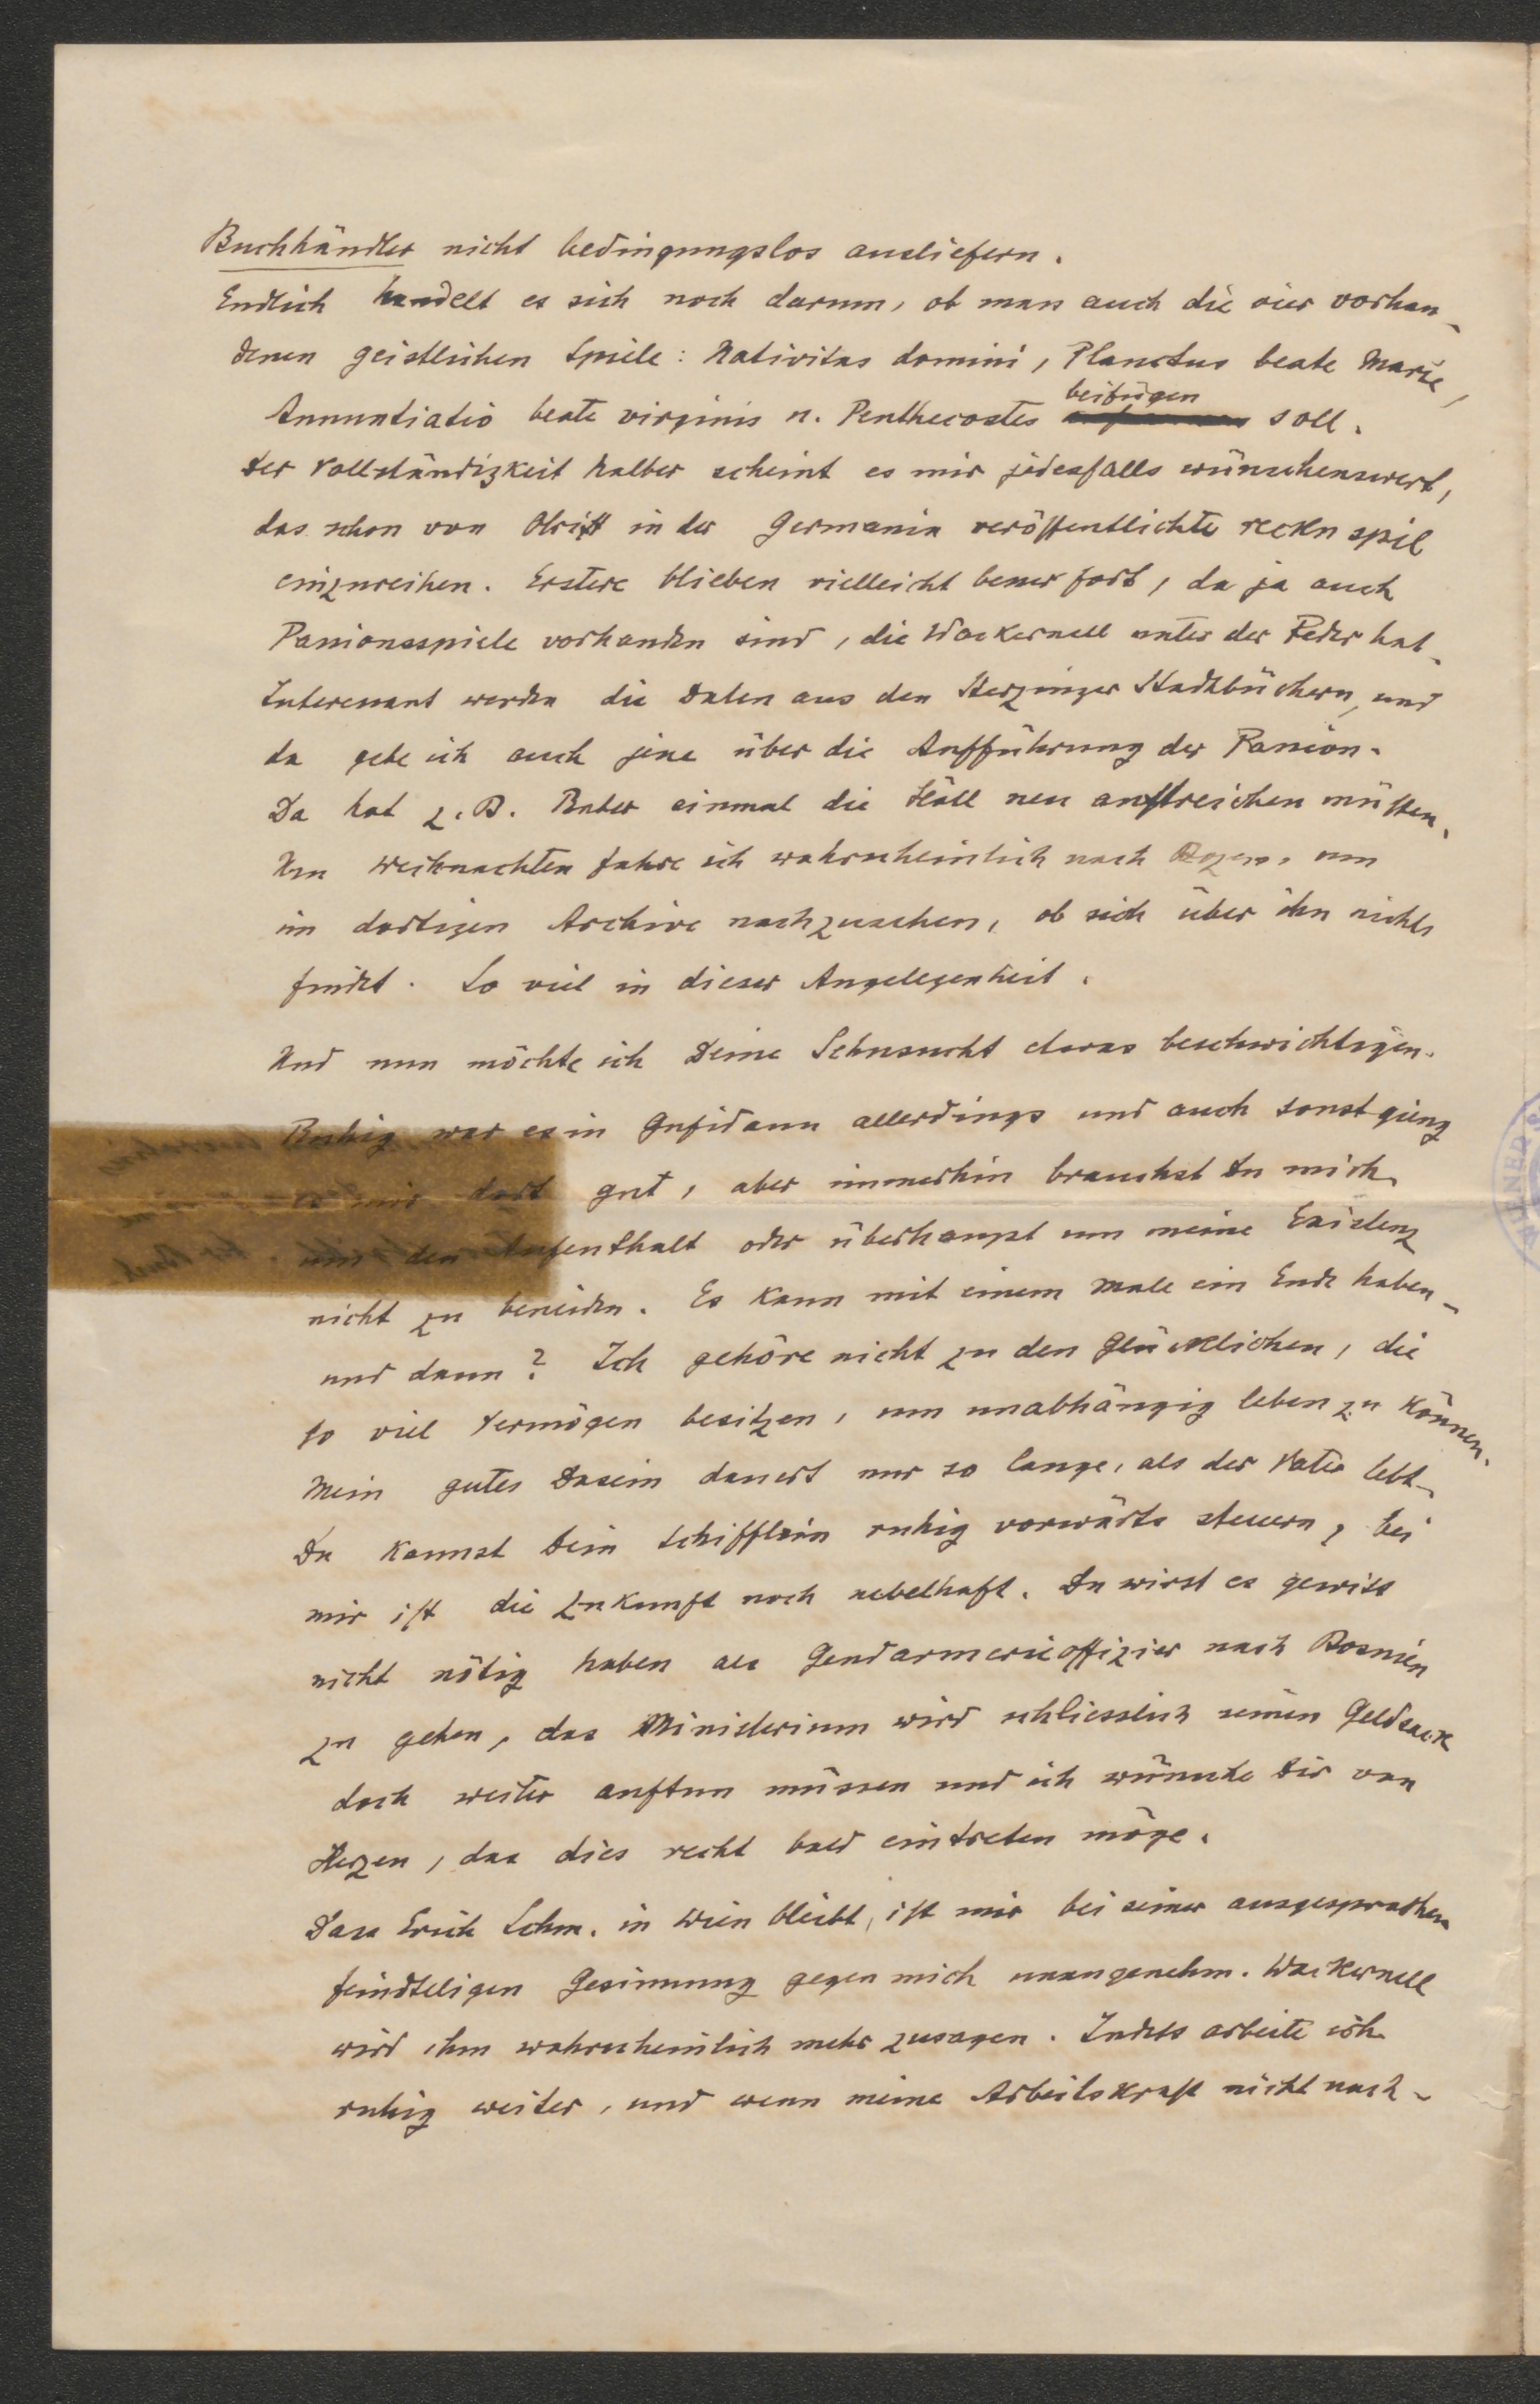 Buchhändler nicht bedingungslos ausliefern.
Endlich handelt es sich noch darum, ob man auch die vier vorhan-
denen geistlichen Spiele: Nativitas domini, Planctus beate Marie,
Annuntiatio beate virginis u. Penthecostes beifügen soll.
Der Vollständigkeit halber scheint es mir jedesfalls wünschenswert,
das schon von in der Germania veröffentlichte recken spil
einzureihen. Erstere blieben vielleicht besser fort, da ja auch
Passionsspiele vorhanden sind, die Wackernell unter der Feder hat.
Interessant werden die Daten aus den Sterzinger Stadtbüchern, und
da gebe ich auch jene über die Aufführung der Passion.
Da hat z. B. Raber einmal die Höll neu anstreichen müssen.
Um Weihnachten fahre ich wahrscheinlich nach Bozen, um
im dortigen Archive nachzusehen, ob sich über ihn nichts
findet. So viel in dieser Angelegenheit.
Und nun möchte ich Deine Sehnsucht etwas beschwichtigen.
Ruhig war es in Gufidaun allerdings und auch sonst gieng
es mir dort gut, aber immerhin brauchst Du mich
um den Aufenthalt oder überhaupt um meine Existenz
nicht zu beneiden. Es kann mit einem Male ein Ende haben -
und dann? Ich gehöre nicht zu den Glücklichen, die
so viel Vermögen besitzen, um unabhängig leben zu können.
Mein gutes Dasein dauert nur so lange, als der Vater lebt.
Du kannst Dein Schifflein ruhig vorwärts steuern, bei
mir ist die Zukunft noch nebelhaft. Du wirst es gewiss
nicht nötig haben als Gendarmerieoffizier nach Bosnien
zu gehen, das Ministerium wird schliesslich seinen Geldsack
doch weiter auftun müssen und ich wünsche Dir von
Herzen, das dies recht bald eintreten möge.
Dass Erich Schm. in Wien bleibt, ist mir bei seiner ausgesprochen
feindseligen Gesinnung gegen mich unangenehm. Wackernell
wird ihm wahrscheinlich mehr zusagen. Indess arbeite ich
ruhig weiter, und wenn meine Arbeitskraft nicht nach-